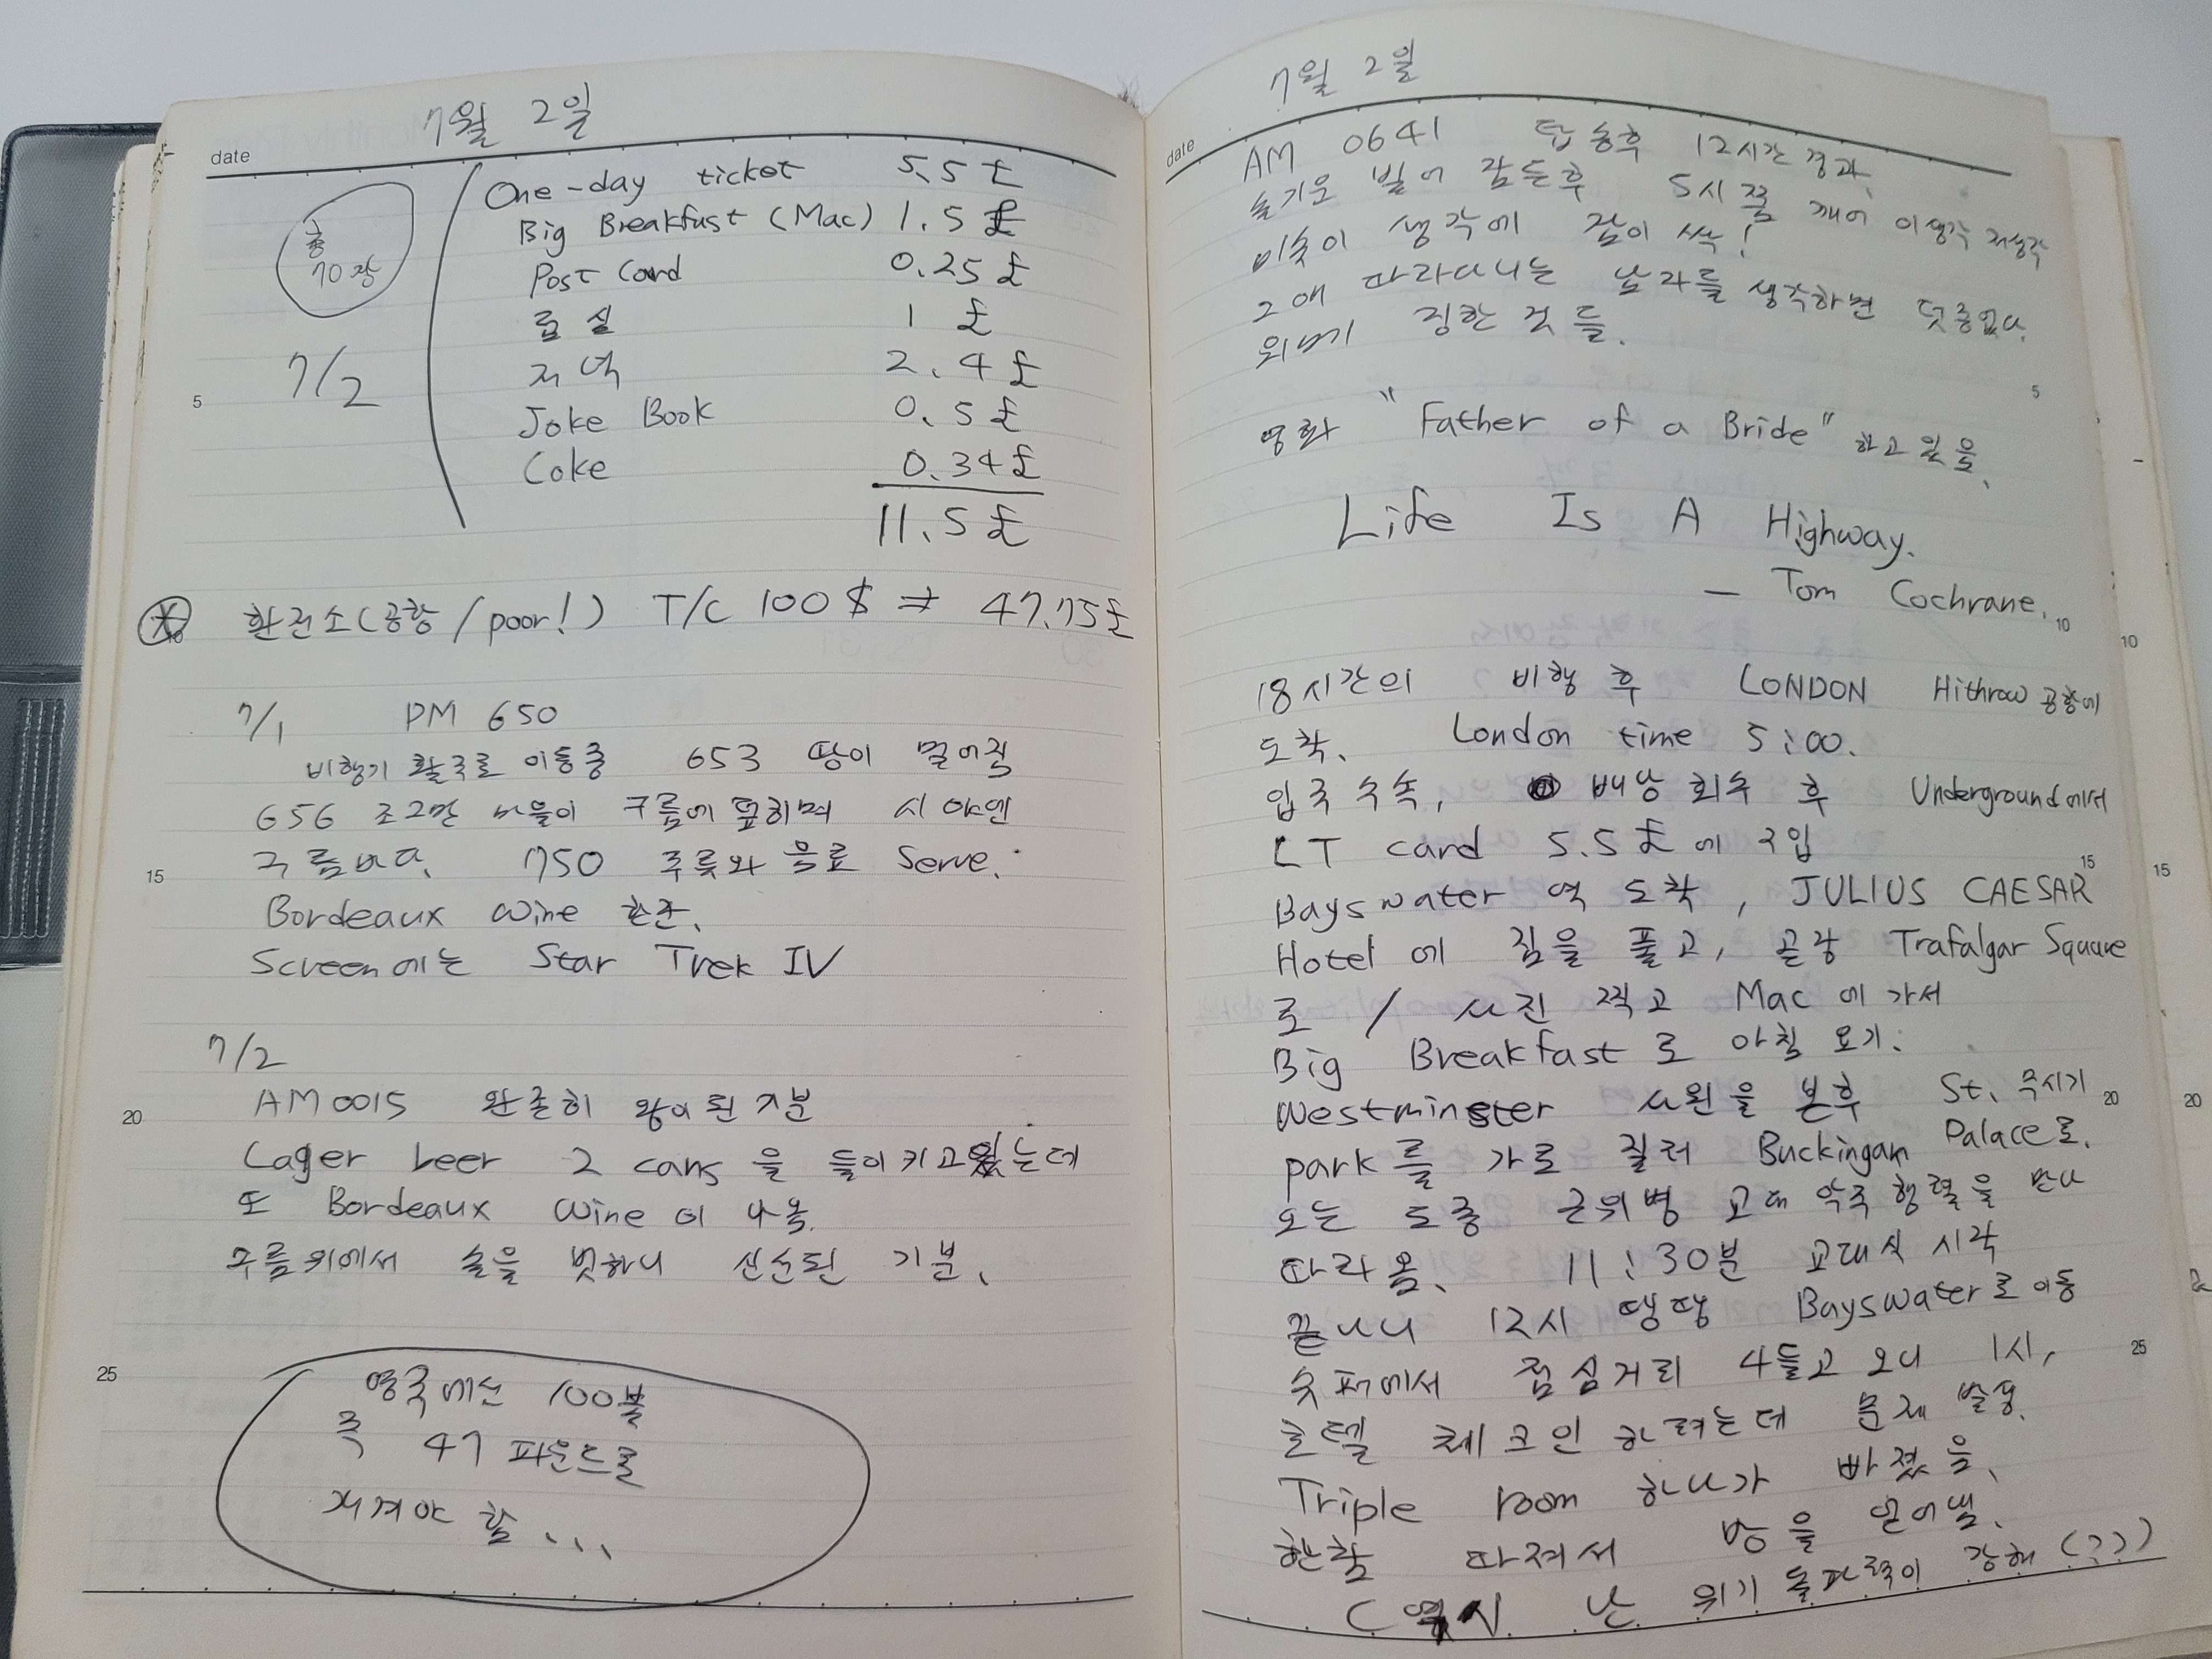 7월 2일
date
One-day ticket 5.5 £
Big Breakfast (Mac) 1.5 £
총
70장
Post Card 0.25 £
1 £
7/2
저녁 2.4 £
5
Joke Book 0.5 £
Coke 0.34 £
11.5 £
환전소 (공항 / poor!) T/C 100 $ ⇒ 47.75 £
10
7/1 PM 650
비행기 활주로 이동중 653 땅이 멀어짐
656 조그만 마을이 구름에 덮히며 시야엔
구름바다. 750 주류와 음료 Serve.
15
Bordeaux Wine 한잔.
Screen에는 Star Trek IV
7/2
AM 0015 완존히 왕이 된 기분
20
Lager beer 2 cans을 들이키고있는데
또 Bordeaux Wine이 나옴.
구름위에서 술을 벗하니 신선된 기분.
25
영국에선 100불
즉 47 파운드로
재겨야 함...
7월 2일
date
AM 0641 탑승후 12시간 경과.
술기운 빌어 잠든후 5시쯤 깨어 이생각 저생각
미숙이 생각에 잠이 싹!
그애 따라다니는 남자들 생각하면 덧없다.
징한 것들.
5
영화 "Father of a Bride" 하고 있음.
Life Is A Highway.
— Tom Cochrane.
10
10
18시간의 비행 후 LONDON Hithrow 공항에
도착. London time 5:00.
입국 수속, 배낭 회수 후 Underground에서
LT card 5.5 £에 구입
15
15
Bayswater 역 도착, JULIUS CAESAR
Hotel에 짐을 풀고, 곧장 Trafalgar Square
로 / 사진 찍고 Mac에 가서
Big Breakfast로 아침 요기.
Westminster 사원을 본후 St.
20
20
park를 가로 질러 Buckingam Palace로.
오는 도중 근위병 교대 악족 행렬을 만나
따라옴. 11:30분 교대식 시작
끝나니 12시 땡땡 Bayswater로 이동
25
숏퍼에서 점심거리 4들고 오니 1시,
호텔 체크인 하려는데 문제 발생.
Triple room 하나가 빠졌음.
한참 따져서 방을 얻어냄.
(역시 난 위기 돌파력이 강해(??)